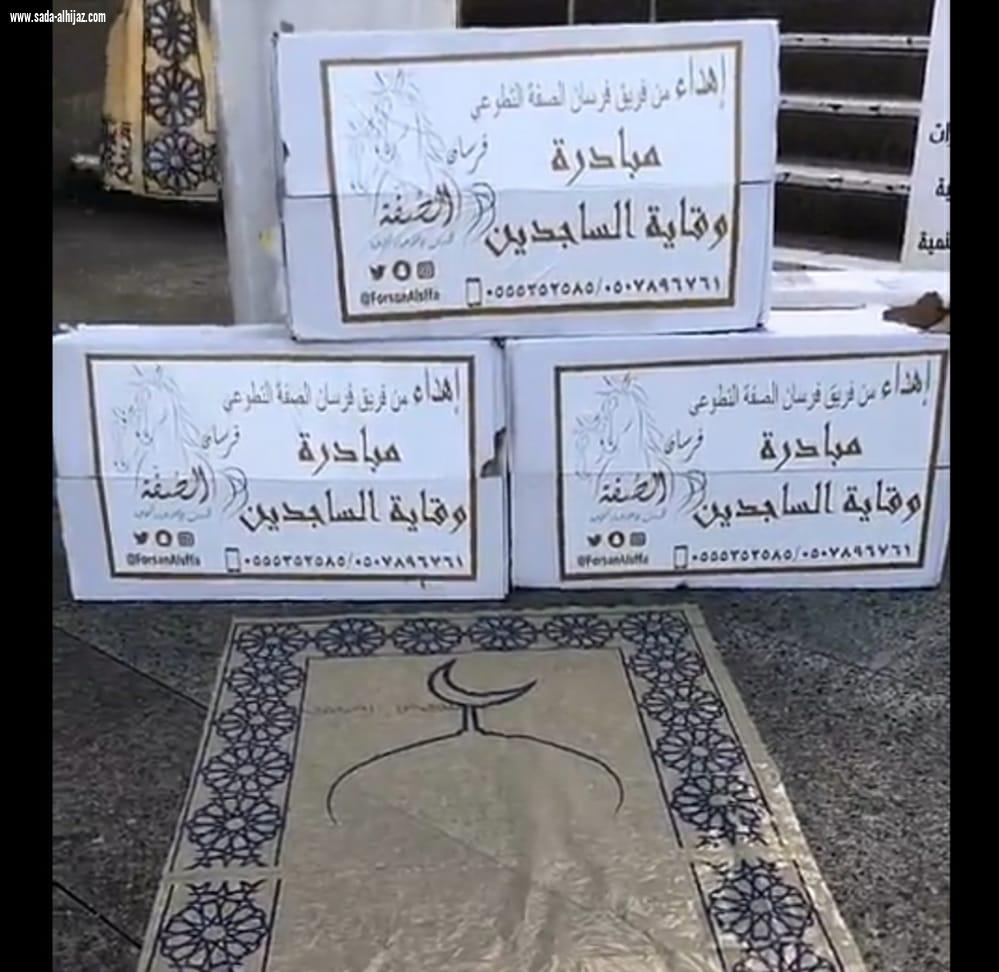 www.sada-alhijaz.com
إهداء من فريق فرسان الصفة التطوعي
مبادرة
وقاية الساجدين
فرسان
الصُفة
@ForsanAlsffa
٠٥٥٥٣٥٢٥٨٥/٠٥٠٧٨٩٦٧٦١
إهداء من فريق فرسان الصفة التطوعي
مبادرة
وقاية الساجدين
فرسان
الصُفة
@ForsanAlsffa
٠٥٥٥٣٥٢٥٨٥/٠٥٠٧٨٩٦٧٦١
إهداء من فريق فرسان الصفة التطوعي
مبادرة
وقاية الساجدين
فرسان
الصُفة
@ForsanAlsffa
٠٥٥٥٣٥٢٥٨٥/٠٥٠٧٨٩٦٧٦١